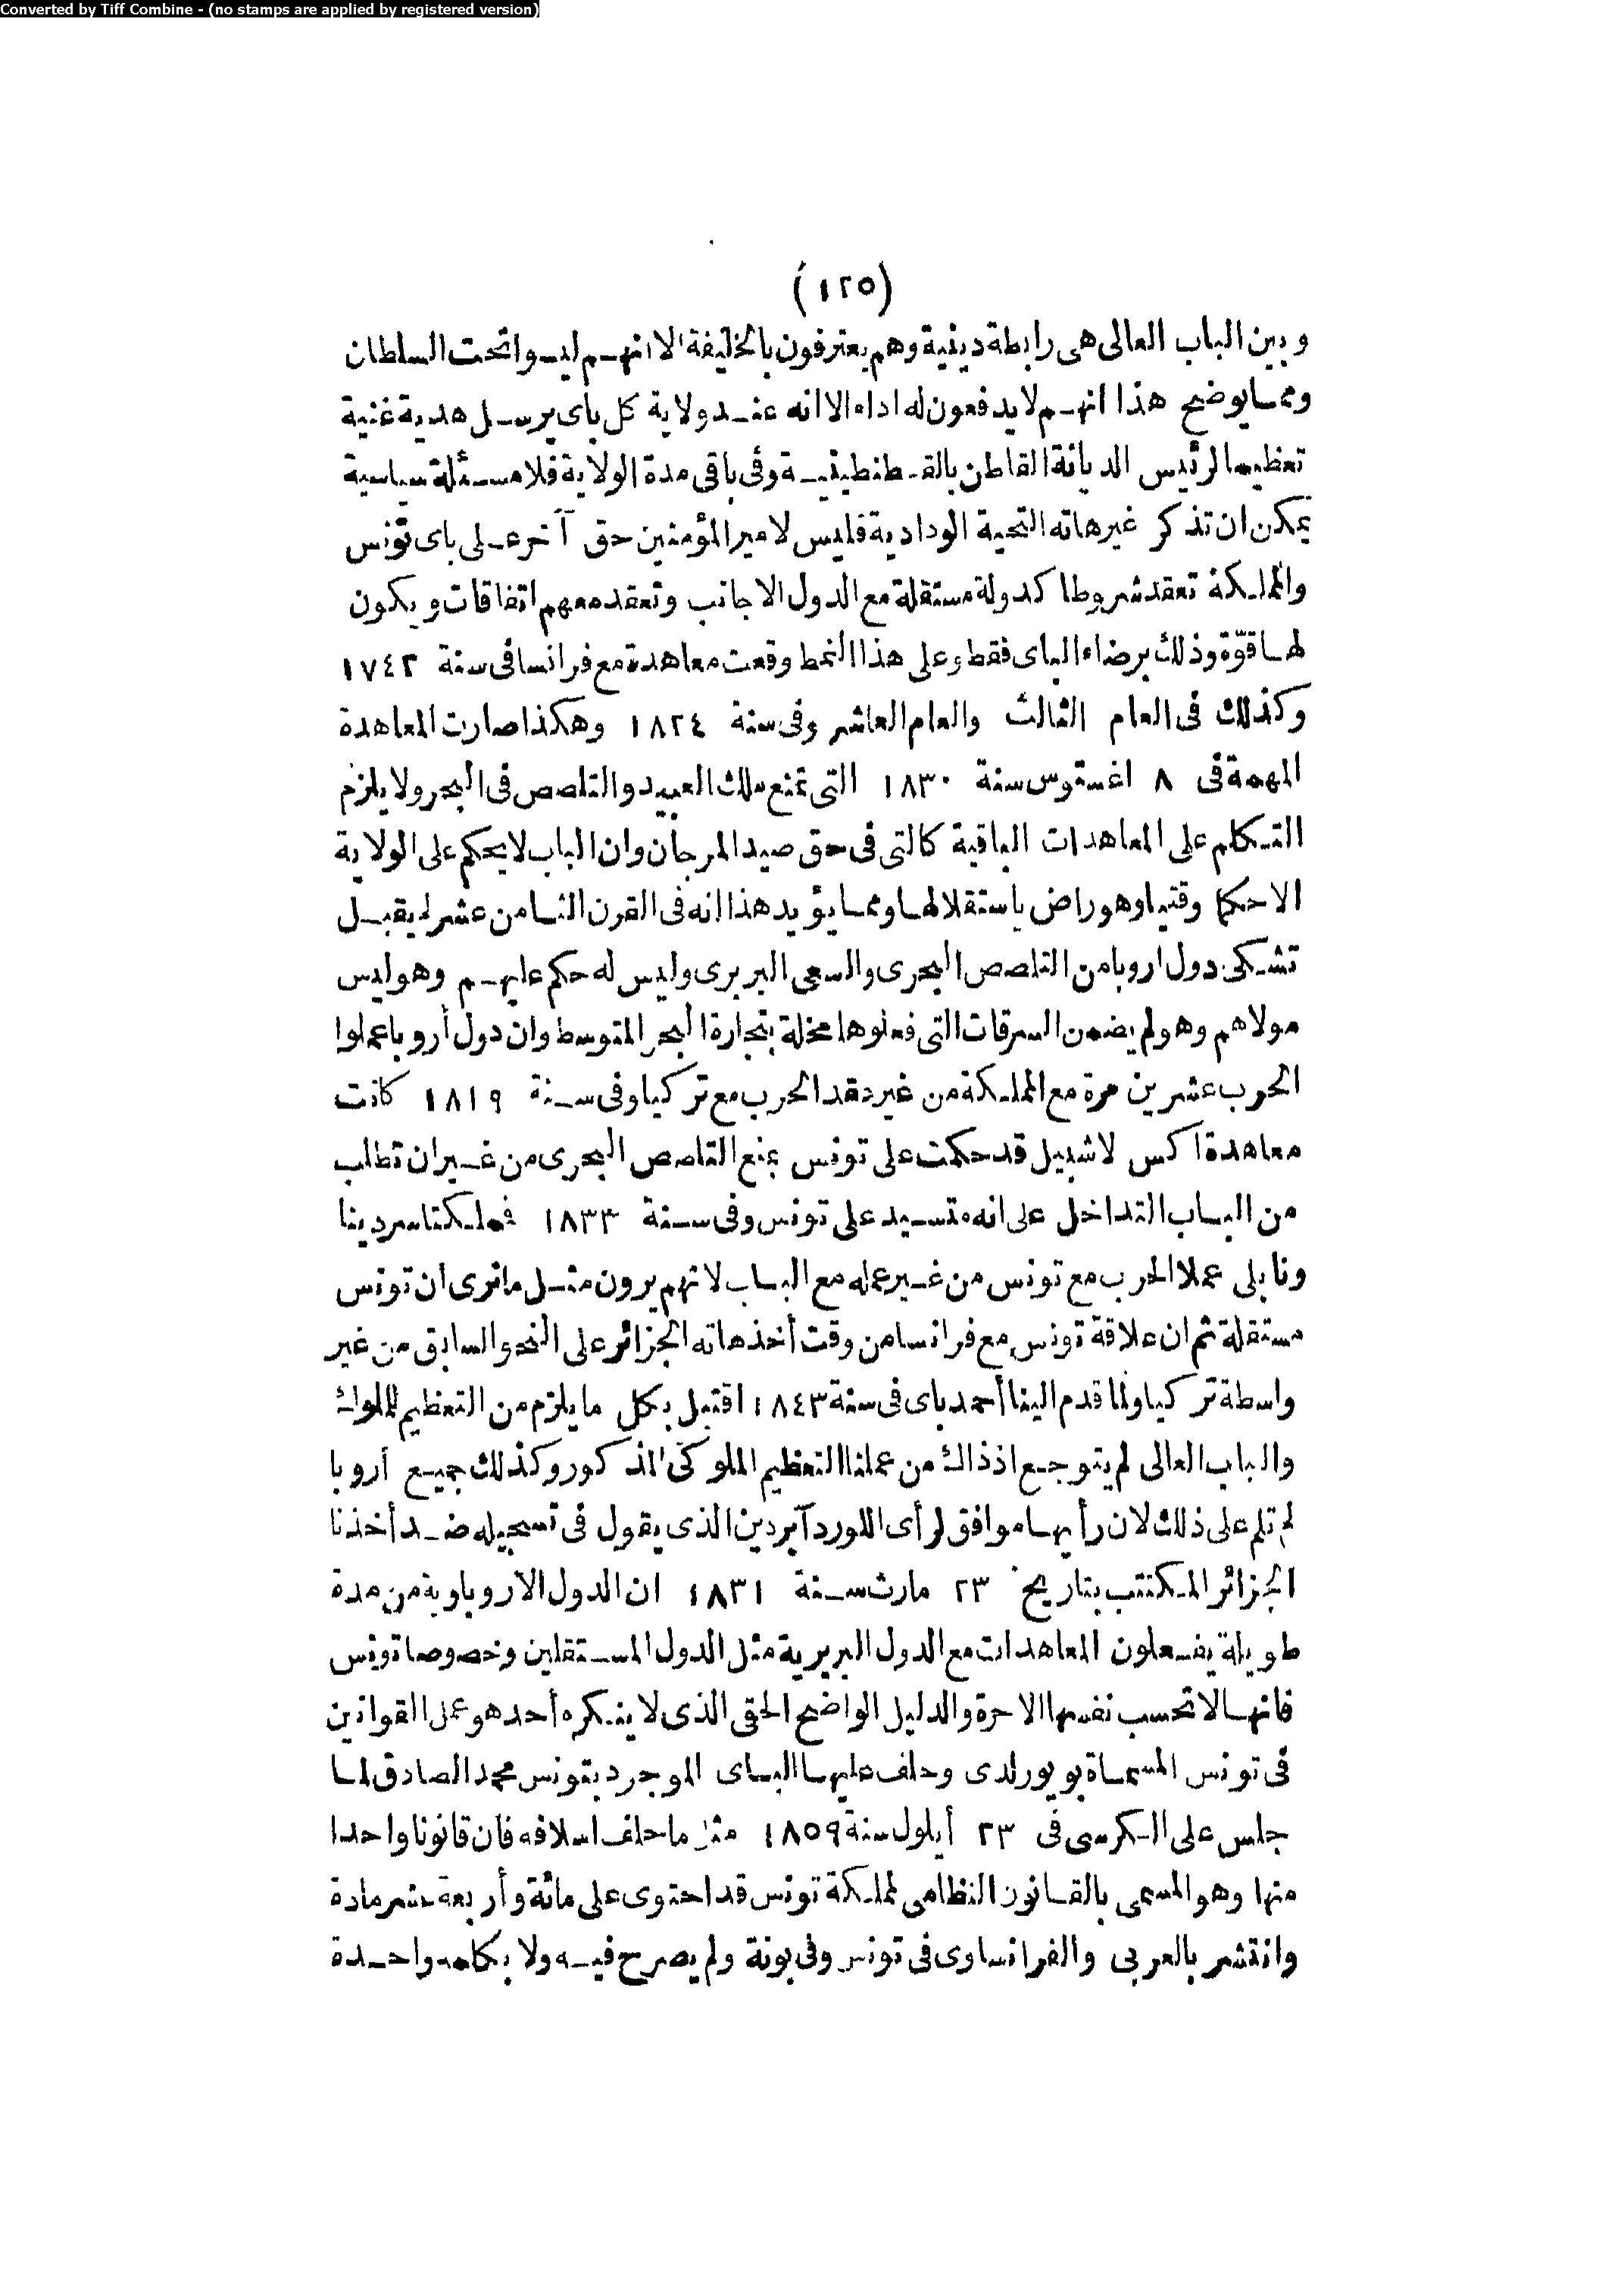 Converted by Tiff Combine - (no stamps are applied by registered version)
(١٢٥)
وبين الباب العالى هى رابطة دينية وهم يعترفون بالخليفة الا انهم ليسوا تحت السلطان
ومما يوضح هذا انهم لا يدفعون له اداء الا انه عند ولاية كل باى يرسل هدية غنية
تعظيما لرئيس الديانة القاطن بالقسطنطينية وفى باقى مدة الولاية فلا مسئلة سياسية
يمكن ان تذكر غير هاته التحية الودادية فليس لامير المؤمنين حق آخر على باى تونس
والمملكة تعقد شروطا كدولة مستقلة مع الدول الاجانب وتعقد معهم اتفاقات ويكون
لها قوّة وذلك برضاء الباى فقط وعلى هذا النمط وقعت معاهدة مع فرانسا فى سنة ١٧٤٢
وكذلك فى العام الثالث والعام العاشر وفى سنة ١٨٢٤ وهكذا صارت المعاهدة
المهمة فى ٨ اغستوس سنة ١٨٣٠ التى تمنع ملك العبيد والتلصص فى البحر ولا يلزم
التكلم على المعاهدات الباقية كالتى فى حق صيد المرجان وان الباب لا يحكم على الولاية
الا حكما وقتيا وهو راض باستقلالها ومما يؤيد هذا انه فى القرن الثامن عشر لم يقبل
تشكى دول اروبا من التلصص البحرى والسعى البربرى وليس له حكم عليهم وهو ليس
مولاهم وهو لم يضمن السرقات التى فعلوها مخلة بتجارة البحر المتوسط وان دول أروبا عملوا
الحرب عشرين مرة مع المملكة من غير دقد الحرب مع تركيا وفى سنة ١٨١٩ كانت
معاهدة اكس لاشبيل قد حكمت على تونس بمنع التلصص البحرى من غير ان تطلب
من الباب التداخل على انه متسيد على تونس وفى سنة ١٨٣٣ فملكتا سردينا
ونابلى عملا الحرب مع تونس من غير عمله مع الباب لانهم يرون مثل ما نرى ان تونس
مستقلة ثم ان علاقة تونس مع فرانسا من وقت أخذ هاته الجزائر على النحو السابق من غير
واسطة تركيا ولما قدم الينا أحمد باى فى سنة ١٨٤٣ اقتبل بكل ما يلزم من التعظيم للملوك
والباب العالى لم يتوجع اذ ذاك من عملنا التعظيم الملوكى المذكور وكذلك جميع أروبا
لم تلم على ذلك لان رأيها موافق لرأى اللورد آبردين الذى يقول فى تسجيله ضد أخذنا
الجزائر المكتتب بتاريخ ٢٣ مارث سنة ١٨٣١ ان الدول الاروباوية من مدة
طويلة يفعلون المعاهدات مع الدول البربرية مثل الدول المستقلين وخصوصا تونس
فانها لا تحسب نفسها الا حرة والدليل الواضح الحقى الذى لا ينكره أحد هو عمل القوانين
فى تونس المسماة بويورلدى وحلف عليها الباى الموجود بتونس محمد الصادق لما
جلس على الكرسى فى ٢٣ أيلول سنة ١٨٥٩ مثل ما حلف اسلافه فان قانونا واحدا
منها وهو المسمى بالقانون النظامى لمملكة تونس قد احتوى على مائة وأربعة عشر مادة
وانتشر بالعربى والفرانساوى فى تونس وفى بونة ولم يصرح فيه ولا بكلمة واحدة